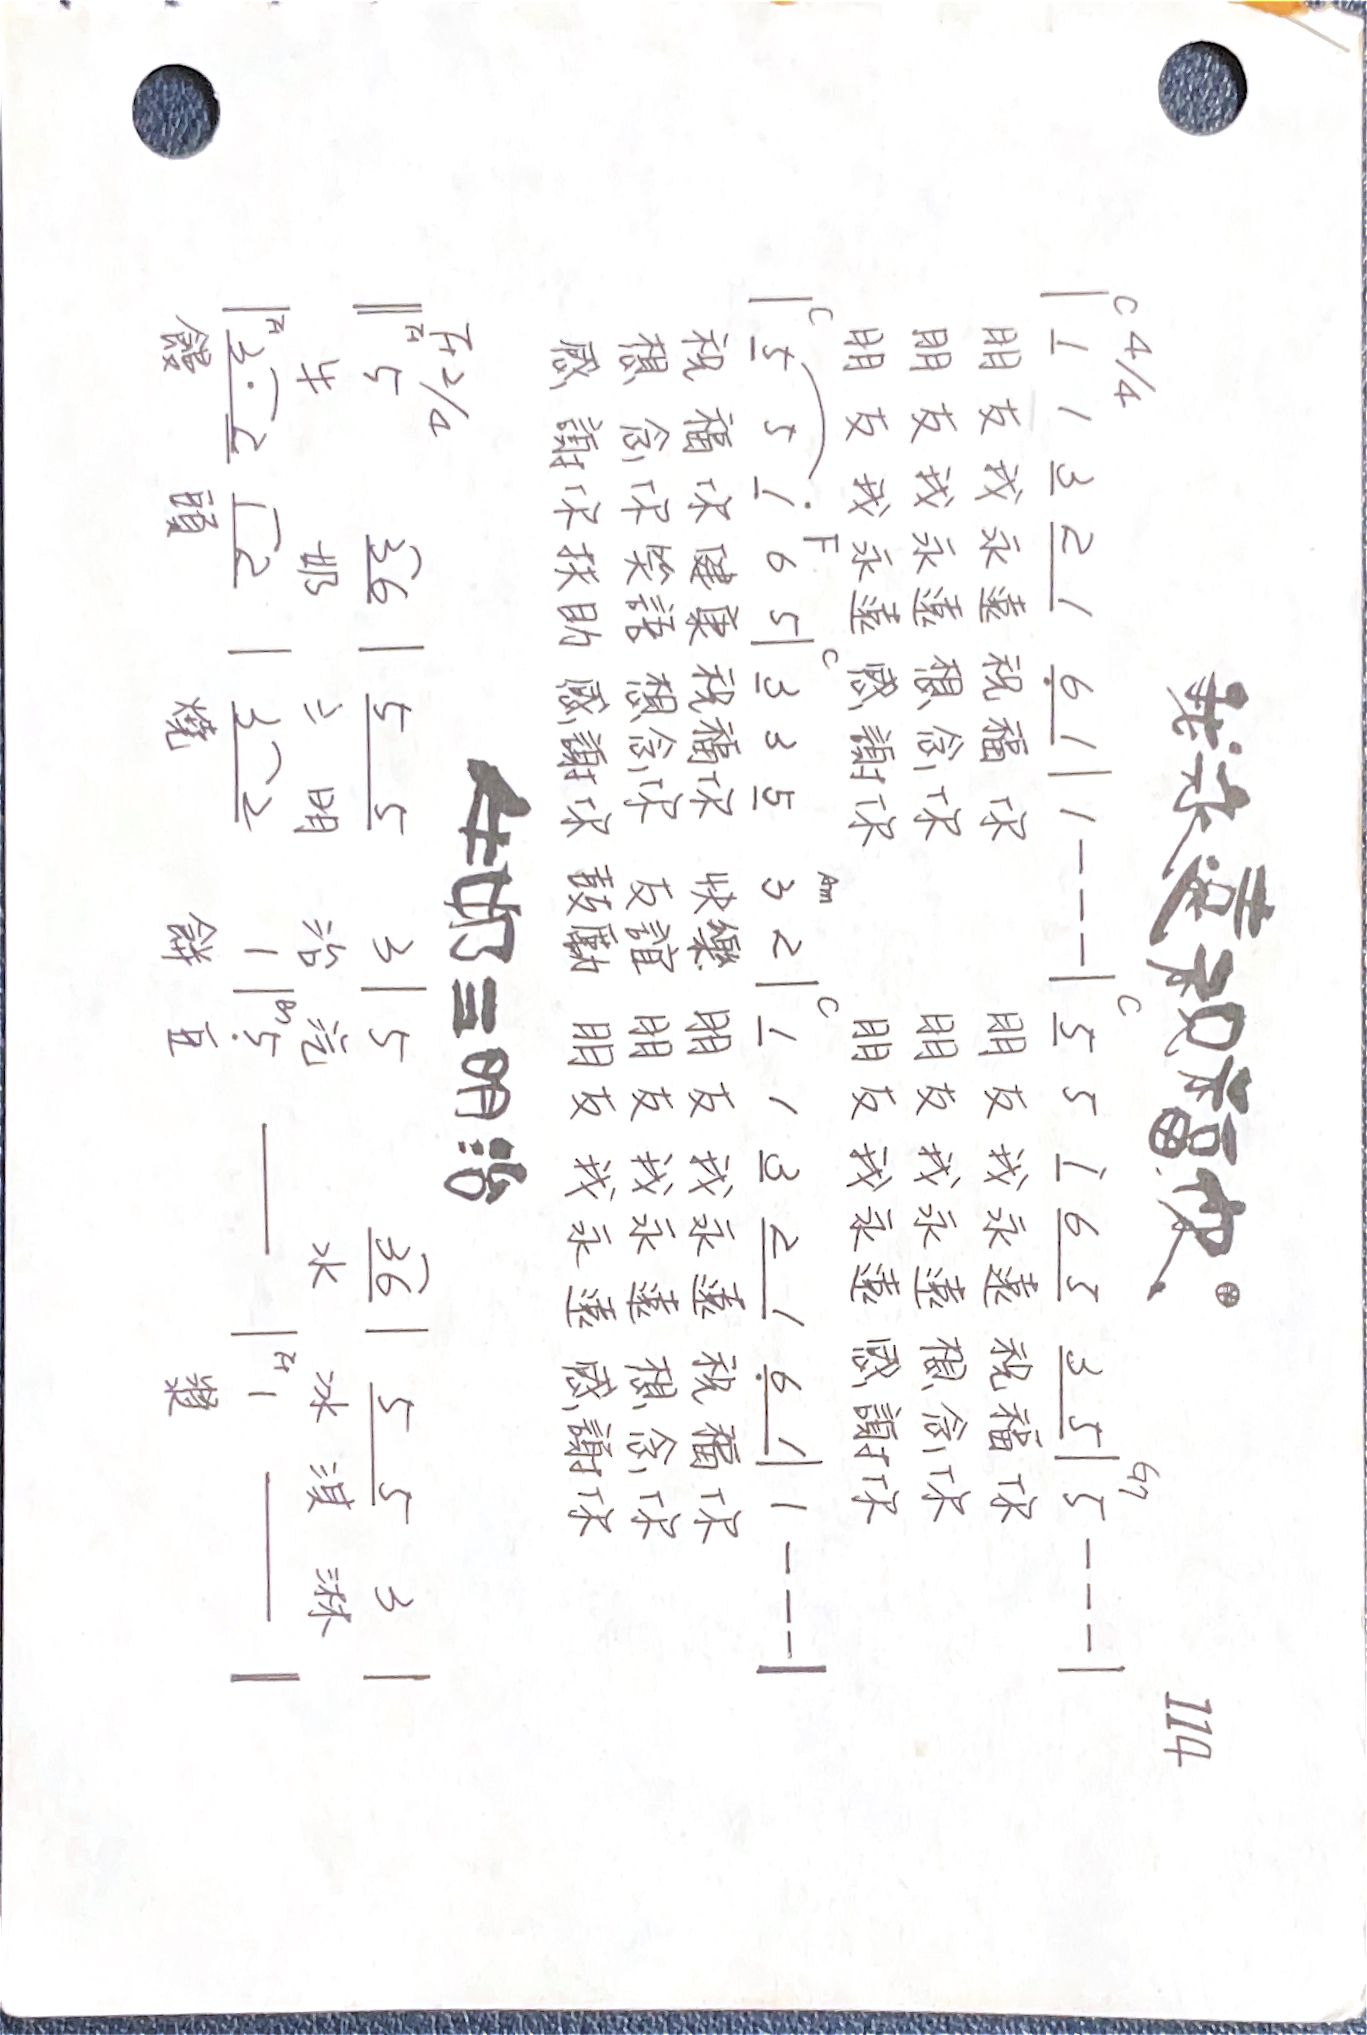 我永遠祝福你
114
C 4/4 C G7
| 1 1 3 2 1 6 1 | 1 - - - | 5 5 i 6 5 3 5 | 5 - - - |
朋友我永遠祝福你 朋友我永遠祝福你
朋友我永遠想念你 朋友我永遠想念你
朋友我永遠感謝你 朋友我永遠感謝你
C F C Am C
| 5 5 1 6 5 | 3 3 5 3 2 | 1 1 3 2 1 6 1 | 1 - - - |
祝福你健康祝福你 快樂 朋友我永遠祝福你
想念你笑語想念你 友誼 朋友我永遠想念你
感謝你扶助感謝你 鼓勵 朋友我永遠感謝你
牛奶三明治
F 2/4
‖ F 5 36 | 5 5 3 | 5 36 | 5 5 3 |
牛 奶 三 明 治 汽 水 冰 淇 淋
| F 3 · 2 1 2 | 3 2 1 | 5 — | F 1 — |
饅 頭 燒 餅 豆 漿